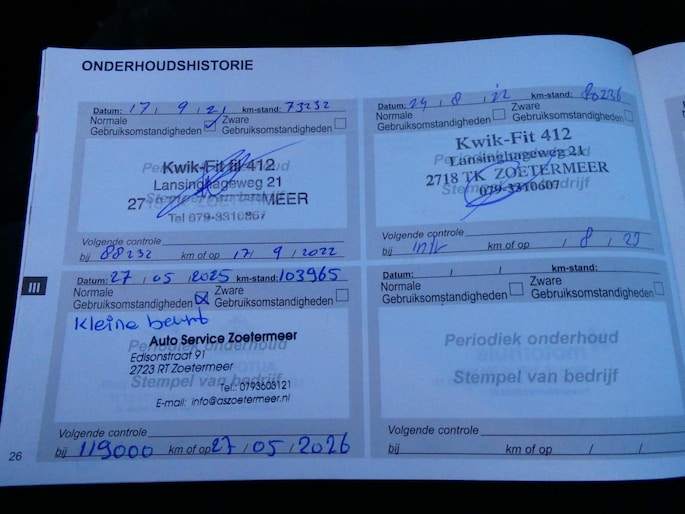 ONDERHOUDSHISTORIE
Datum: 17 / 9 / 21 km-stand: 73232
Normale Gebruiksomstandigheden
Zware Gebruiksomstandigheden
Periodiek onderhoud
Kwik-Fit fil 412
Lansinghageweg 21
Stempel van bedrijf
27 MEER
Tel 079-3310607
Volgende controle
bij 88232 km of op 17 / 9 / 2022
Datum: 24 / 8 / 22 km-stand: 80236
Normale Gebruiksomstandigheden
Zware Gebruiksomstandigheden
Kwik-Fit 412
Periodiek onderhoud
Lansinghageweg 21
2718 TK ZOETERMEER
Stempel van bedrijf
079-3310607
Volgende controle
bij km of op / 8 / 23
III
Datum: 27 / 05 / 2025 km-stand: 103965
Normale Gebruiksomstandigheden
Zware Gebruiksomstandigheden
Kleine beurt
Auto Service Zoetermeer
Periodiek onderhoud
Edisonstraat 91
2723 RT Zoetermeer
Stempel van bedrijf
Tel.: 0793603121
E-mail: info@aszoetermeer.nl
Volgende controle
bij 119000 km of op 27 / 05 / 2026
Datum: / / km-stand:
Normale Gebruiksomstandigheden
Zware Gebruiksomstandigheden
Periodiek onderhoud
Stempel van bedrijf
Volgende controle
bij km of op / /
26